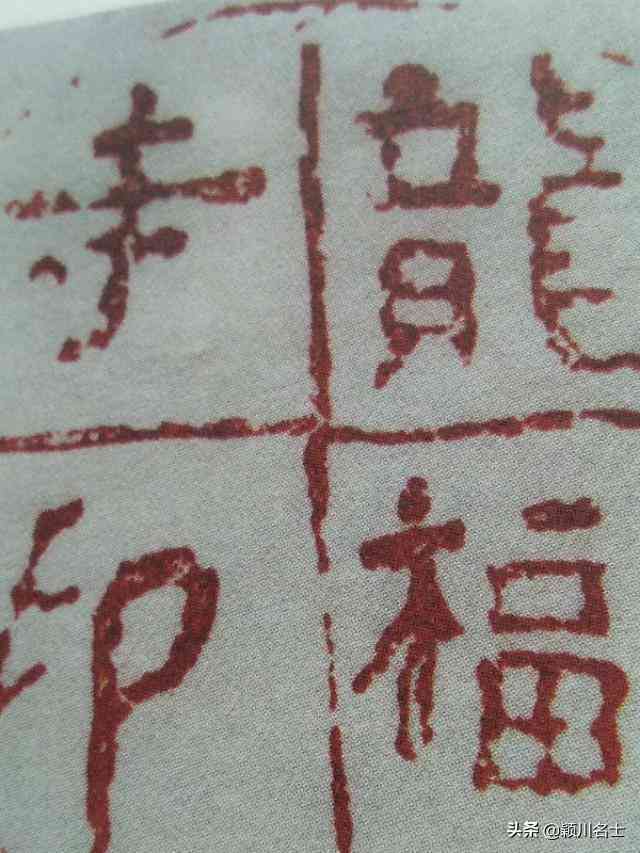 龍福
寺印
头条 @颖川名士